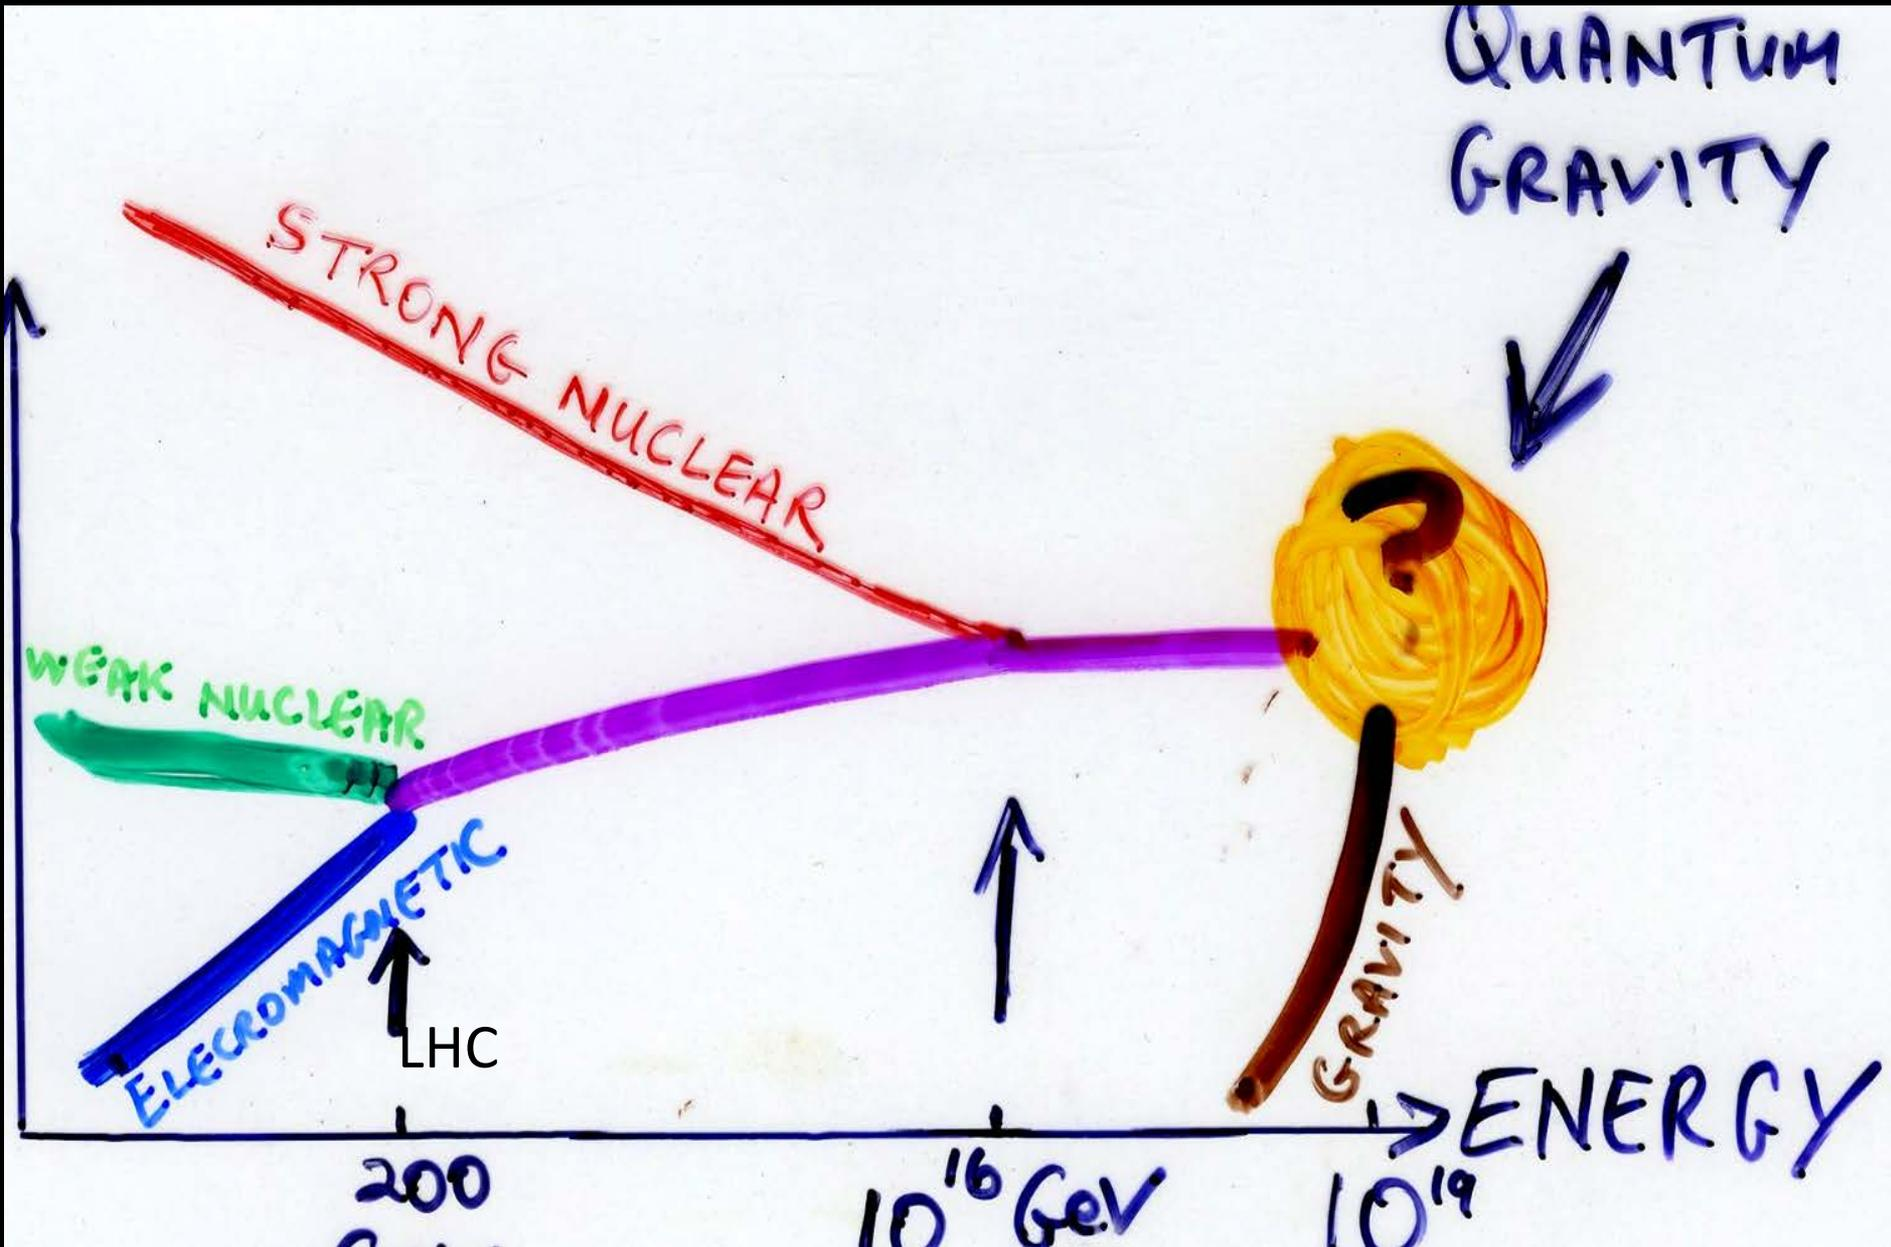 QUANTUM
GRAVITY
STRONG NUCLEAR
WEAK NUCLEAR
ELECROMAGNETIC
LHC
GRAVITY
ENERGY
200
10¹⁶ GeV
10¹⁹